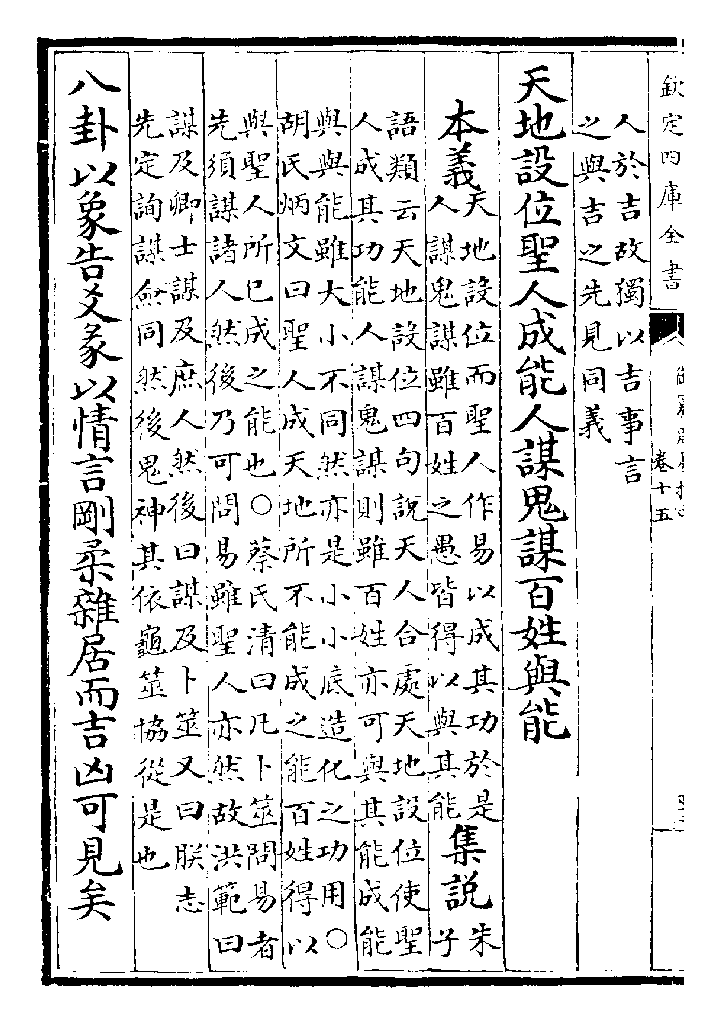 欽定四庫全書
卷十五
人於吉故獨以吉事言
之與吉之先見同義
天地設位聖人成能人謀鬼謀百姓與能
本義
天地設位而聖人作易以成其功於是
人謀鬼謀雖百姓之愚皆得以與其能
集說
朱子
語類云天地設位四句說天人合處天地設位使聖
人成其功能人謀鬼謀則雖百姓亦可與其能成能
與與能雖大小不同然亦是小小底造化之功用○
胡氏炳文曰聖人成天地所不能成之能百姓得以
與聖人所已成之能也○蔡氏清曰凡卜筮問易者
先須謀諸人然後乃可問易雖聖人亦然故洪範曰
謀及卿士謀及庶人然後曰謀及卜筮又曰朕志
先定詢謀僉同然後鬼神其依龜筮協從是也
八卦以象告爻彖以情言剛柔雜居而吉凶可見矣